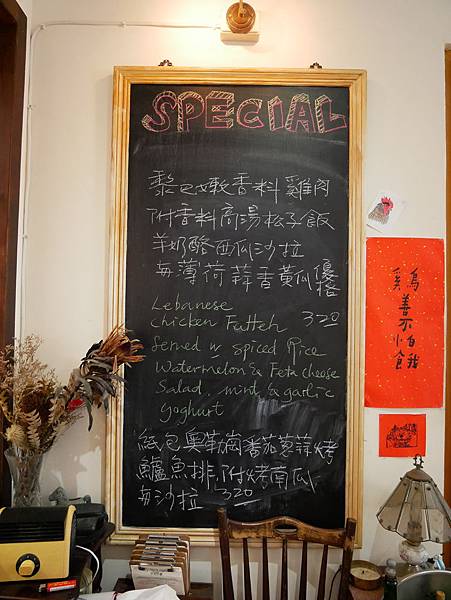 SPECIAL
黎巴嫩香料雞肉
附香料高湯松子飯
羊奶酪西瓜沙拉
與薄荷蒜香黃瓜優格
Lebanese
chicken Fatteh 320
served w spiced Rice
Watermelon & Feta cheese
Salad, mint & garlic
Yoghurt
紙包奧勒崗番茄蔥蒜烤
鱸魚排,附烤南瓜
與沙拉 320
善不
小食